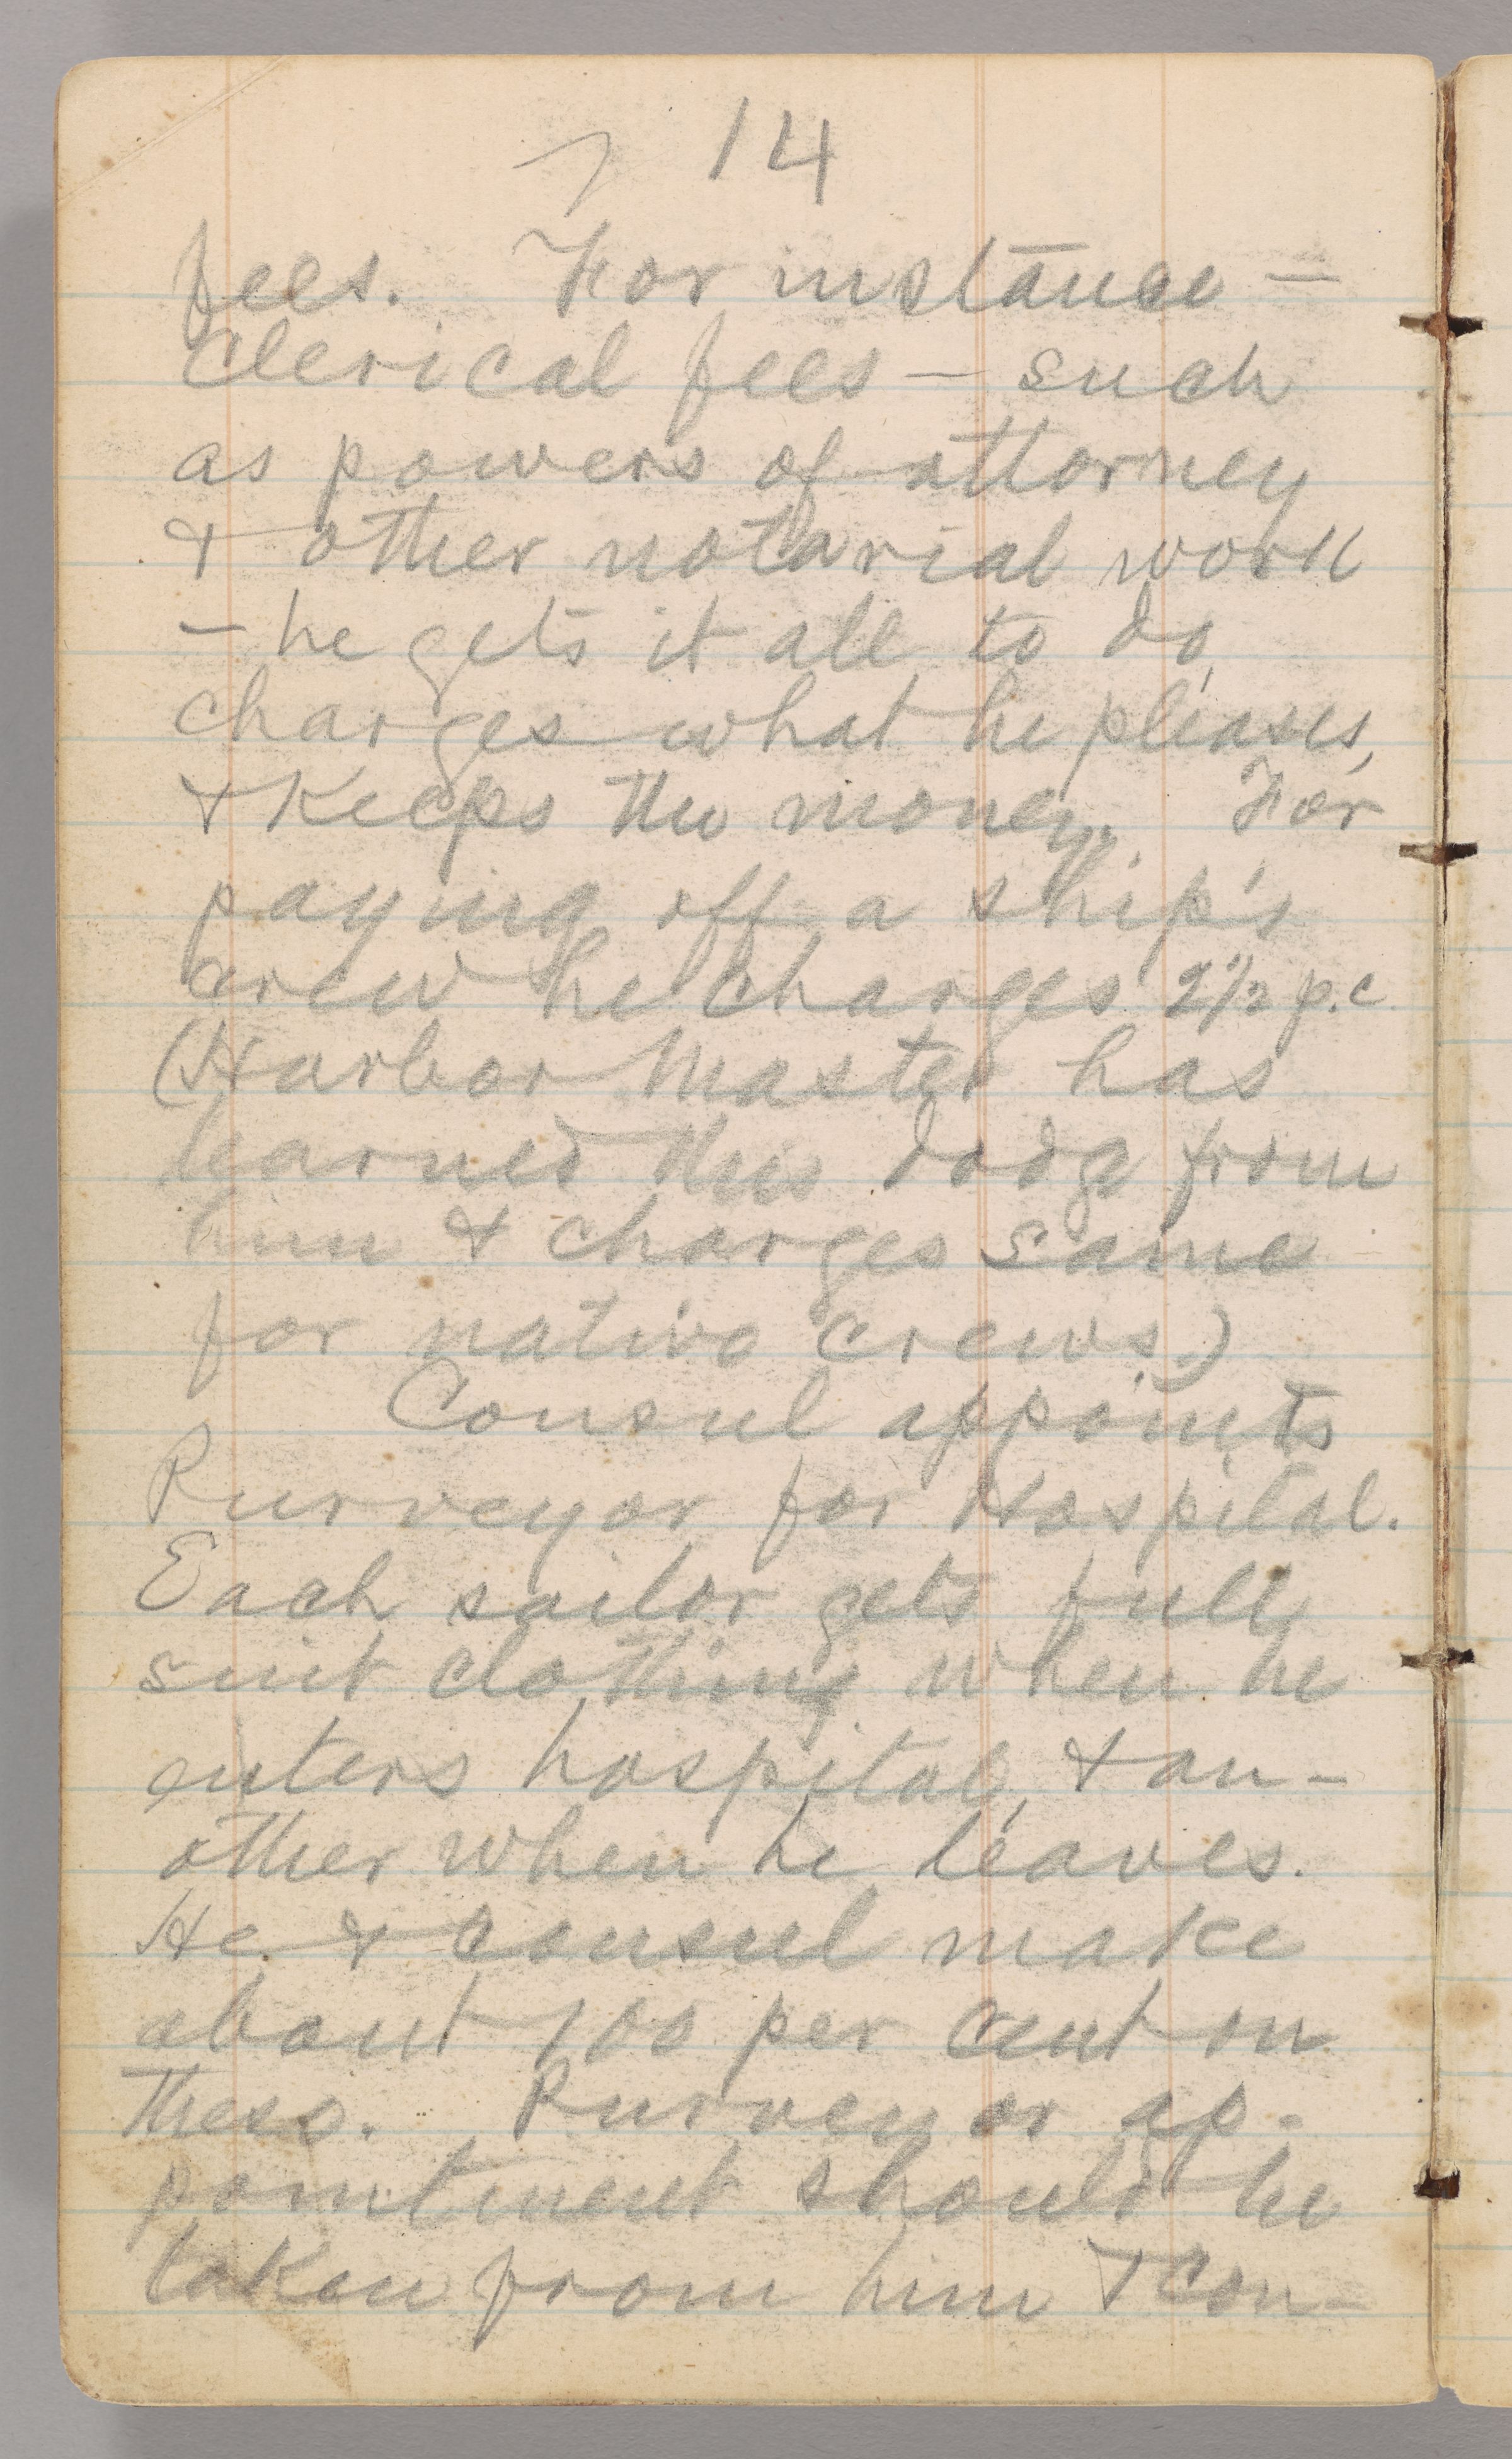 14
fees. For instance —
Clerical fees — such
as powers of attorney
& other notarial work
— he gets it all to do,
charges what he pleases,
& keeps the money. For
paying off a ship's
crew he charges 2½ p.c
(Harbor Master has
learned this dodg from
him & charges same
for native crews.)
Consul appoints
Purveyor for Hospital.
Each sailor gets full
suit clothing when he
enters hospital, & an-
other when he leaves.
He & consul make
about 100 per cent on
these. Purveyor ap-
pointment should be
taken from him & Con-